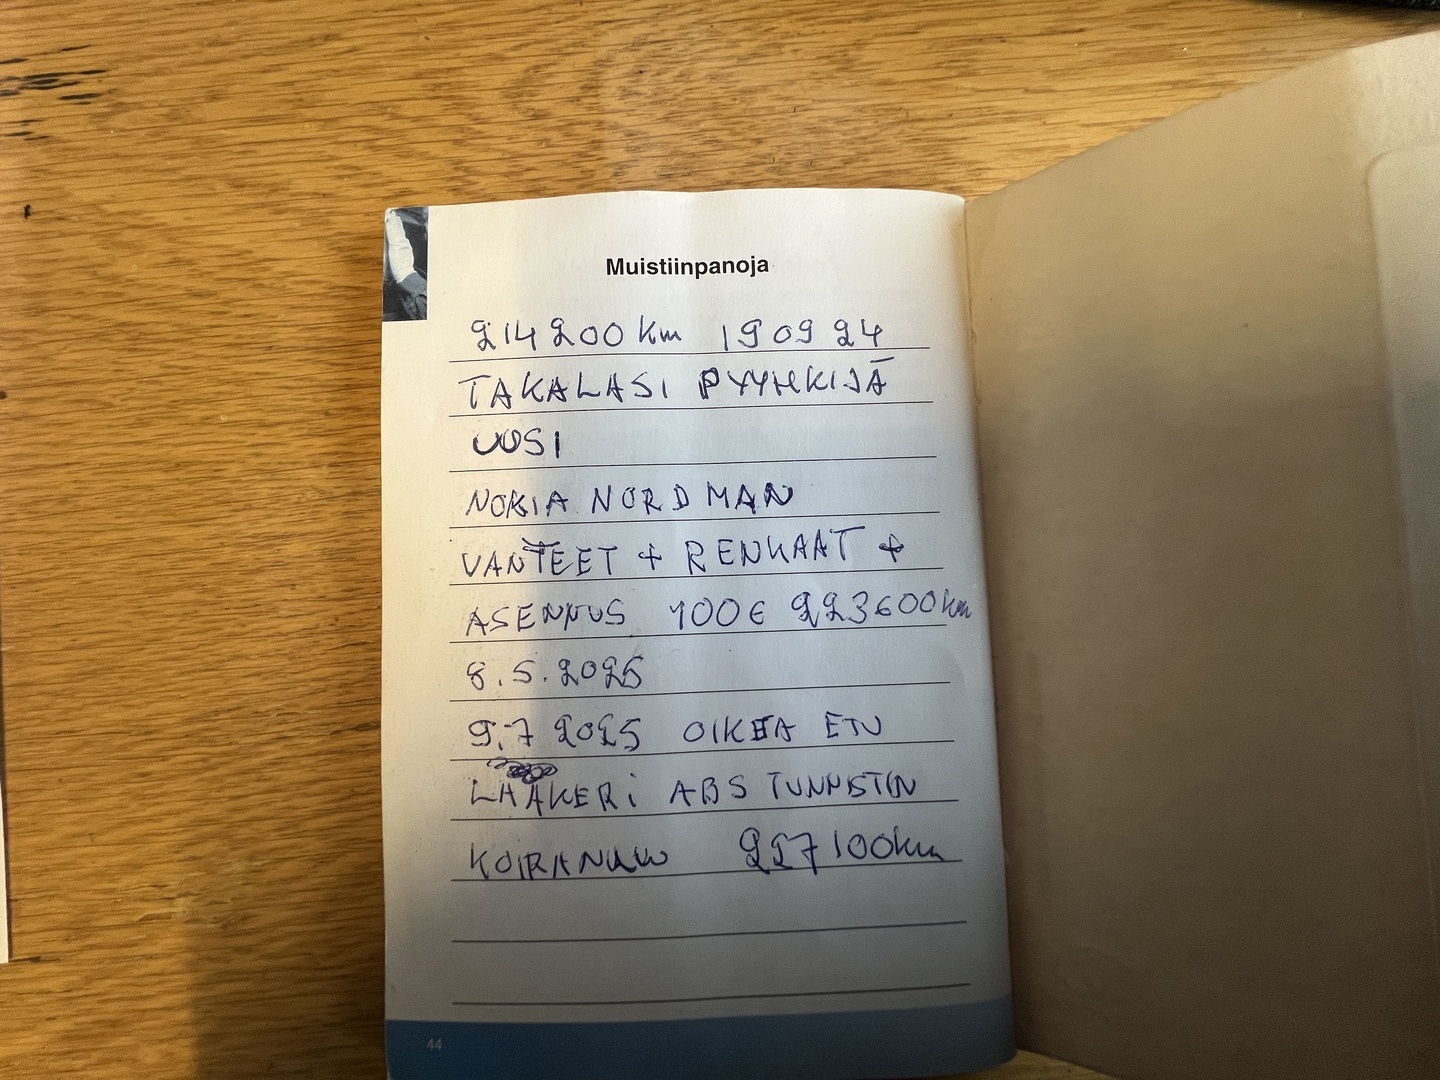 Muistiinpanoja
214200 km 19 09 24
TAKALASI PYYHKIJÄ
UUSI
NOKIA NORDMAN
VANTEET + RENKAAT +
ASENNUS 100€ 223600km
8.5.2025
9.7 2025 OIKEA ETU
LAAKERI ABS TUNNISTIN
227100km
44